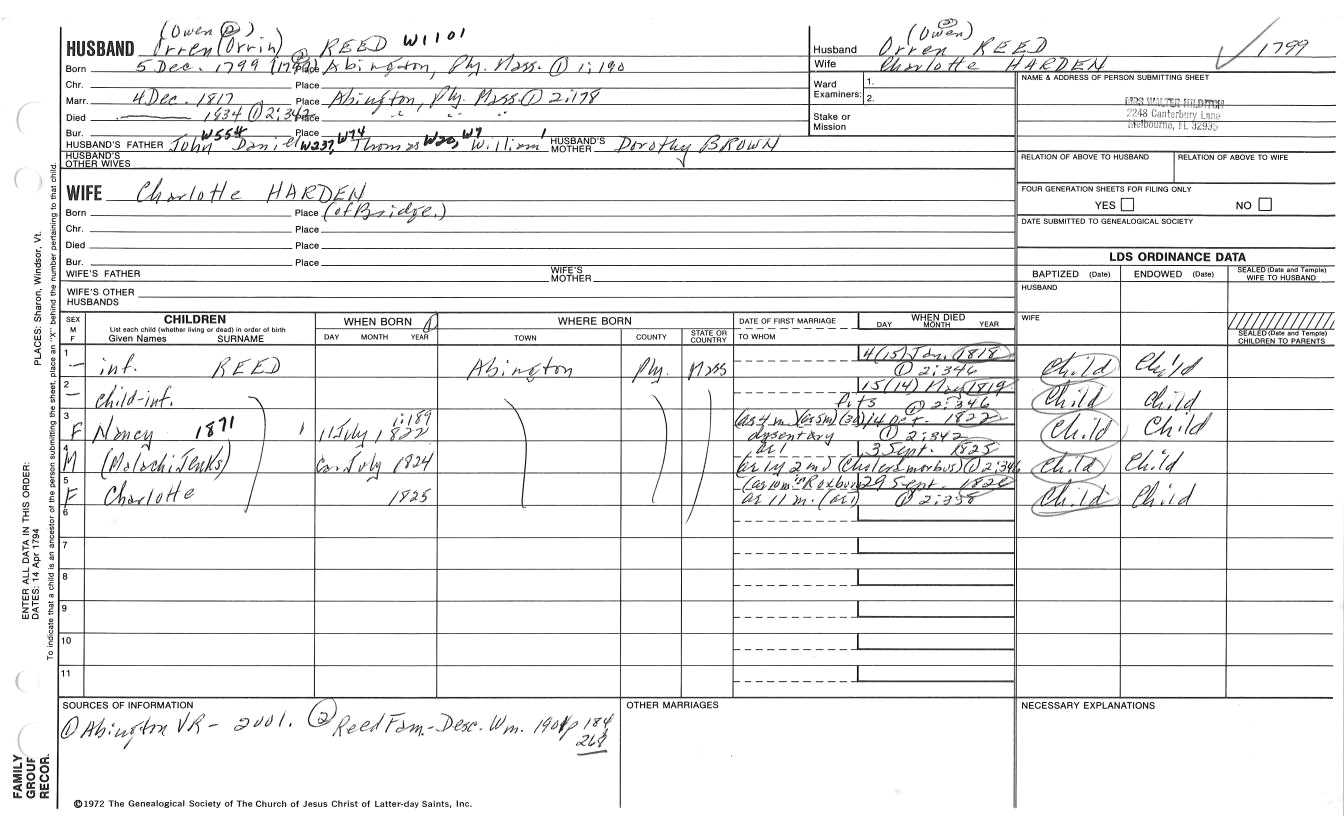 (Owen ②)
HUSBAND Orren (Orrin) REED W1101
Born 5 Dec. 1799 Place Abington, Ply. Mass. ① 1:190
Chr. Place
Marr. 4 Dec. 1817 Place Abington, Ply. Mass ① 2:178
Died 1834 ① 2:342 Place " " "
Bur. Place
W554 W237, W74 W20, W7 1
HUSBAND'S FATHER John Daniel Thomas William HUSBAND'S MOTHER Dorothy BROWN
HUSBAND'S OTHER WIVES
(Owen) ②
Husband Orren REED 1799
Wife Charlotte HARDEN
Ward Examiners: 1. 2.
Stake or Mission
NAME & ADDRESS OF PERSON SUBMITTING SHEET
MRS WALTER HILDITCH
2248 Canterbury Lane
Melbourne, FL 32935
RELATION OF ABOVE TO HUSBAND RELATION OF ABOVE TO WIFE
FOUR GENERATION SHEETS FOR FILING ONLY
YES NO
DATE SUBMITTED TO GENEALOGICAL SOCIETY
WIFE Charlotte HARDEN
Born Place (of Bridge.)
Chr. Place
Died Place
Bur. Place
WIFE'S FATHER WIFE'S MOTHER
WIFE'S OTHER HUSBANDS
LDS ORDINANCE DATA
BAPTIZED (Date) ENDOWED (Date) SEALED (Date and Temple) WIFE TO HUSBAND
HUSBAND
WIFE
SEALED (Date and Temple) CHILDREN TO PARENTS
SEX M F
CHILDREN
List each child (whether living or dead) in order of birth
Given Names SURNAME
WHEN BORN ①
DAY MONTH YEAR
WHERE BORN
TOWN COUNTY STATE OR COUNTRY
DATE OF FIRST MARRIAGE
TO WHOM
WHEN DIED
DAY MONTH YEAR
1 – inf. REED Abington Ply. Mass 4 (15) Jan. 1818 ① 2:346 Child Child
2 – child-inf. 15 (14) 1819 fits ① 2:346 Child child
3 F Nancy 1871 11 July 1822 1:189 (as 4 m) 14 Oct. 1822 dysentary ① 2:342 Child Child
4 M (Malachi Jenks) July 1824 ar 1 3 Sept. 1825 ar 1y 2 m (cholera morbus) ① 2:346 Child Child
5 F Charlotte 1825 29 Sept. 1826 ar 11 m. (ar 1) ① 2:338 Child Child
6
7
8
9
10
11
SOURCES OF INFORMATION
① Abington VR – 2001. ② Reed Fam.-Desc. Wm. 1901 p 184
268
OTHER MARRIAGES
NECESSARY EXPLANATIONS
©1972 The Genealogical Society of The Church of Jesus Christ of Latter-day Saints, Inc.
FAMILY GROUP RECOR.
ENTER ALL DATA IN THIS ORDER:
DATES: 14 Apr 1794
PLACES: Sharon, Windsor, Vt.
To indicate that a child is an ancestor of the person submitting the sheet, place an "X" behind the number pertaining to that child.